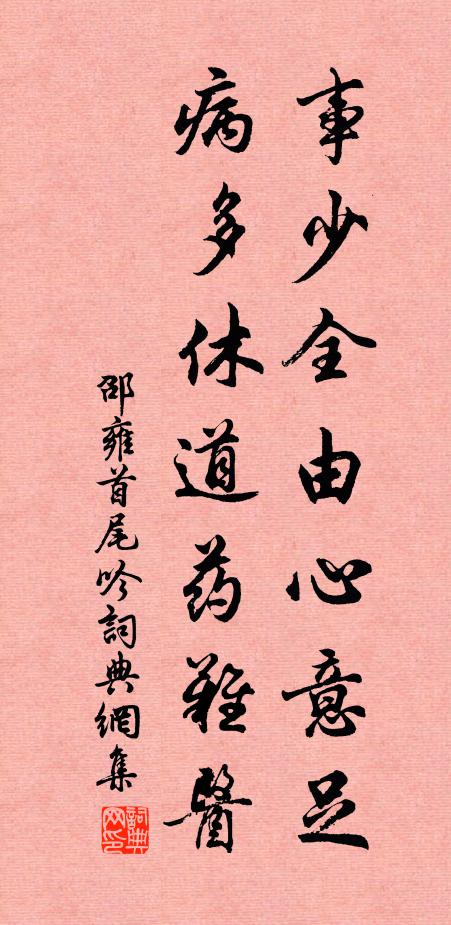 事少全由心意足
病多休道药難醫
邵雍首尾吟詞典網集
詞典
网印